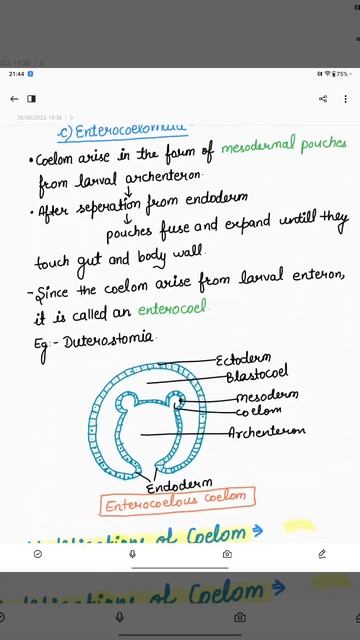 21:44
75%
30/08/2023, 19:38 | 0
c) Enterocoelomata
• Coelom arise in the form of mesodermal pouches
from larval archenteron.
• After seperation from endoderm
pouches fuse and expand untill they
touch gut and body wall.
- Since the coelom arise from larval enteron,
it is called an enterocoel.
Eg:- Duterostomia.
Ectoderm
Blastocoel
mesoderm
coelom
Archenteron
Endoderm
Enterocoelous coelom
Modifications of Coelom →
of Coelom →